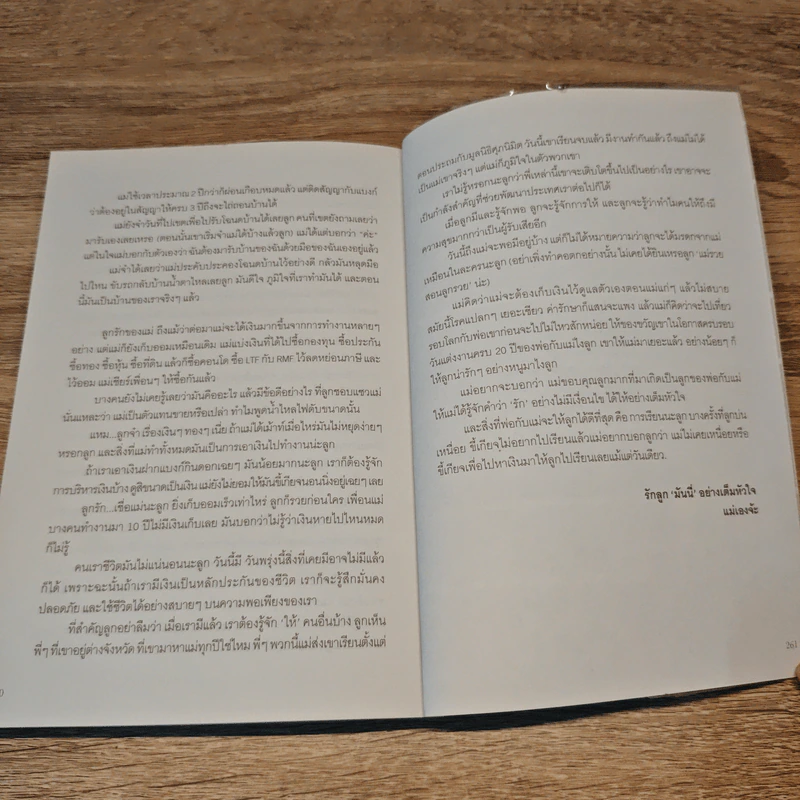 แม่ใช้เวลาประมาณ 2 ปีกว่าก็ผ่อนเกือบหมดแล้ว แต่ติดสัญญากับแบงก์
ว่าต้องอยู่ในสัญญาให้ครบ 3 ปีถึงจะไถ่ถอนบ้านได้
แม่ยังจำวันที่ไปเขตเพื่อไปรับโฉนดบ้านได้เลยลูก คนที่เขตยังถามเลยว่า
มารับเองเลยเหรอ (ตอนนั้นเขาเริ่มจำแม่ได้บ้างแล้วลูก) แม่ได้แต่บอกว่า “ค่ะ”
แต่ในใจแม่บอกกับตัวเองว่า ฉันต้องมารับบ้านของฉันด้วยมือของฉันเองอยู่แล้ว
แม่จำได้เลยว่าแม่ประคับประคองโฉนดบ้านไว้อย่างดี กลัวมันหลุดมือ
ไปไหน ขับรถกลับบ้านน้ำตาไหลเลยลูก มันดีใจ ภูมิใจที่เราทำมันได้ และตอน
นี้มันเป็นบ้านของเราจริงๆ แล้ว
ลูกรักของแม่ ถึงแม้ว่าต่อมาแม่จะได้เงินมากขึ้นจากการทำงานหลายๆ
อย่าง แต่แม่ก็ยังเก็บออมเหมือนเดิม แม่แบ่งเงินที่ได้ไปซื้อกองทุน ซื้อประกัน
ซื้อทอง ซื้อหุ้น ซื้อที่ดิน แล้วก็ซื้อคอนโด ซื้อ LTF กับ RMF ไว้ลดหย่อนภาษี และ
ไว้ออม แม่เชียร์เพื่อนๆ ให้ซื้อกันแล้ว
บางคนยังไม่เคยรู้เลยว่ามันคืออะไร แล้วมีข้อดีอย่างไร ที่ลูกชอบแซวแม่
นั่นแหละว่า แม่เป็นตัวแทนขายหรือเปล่า ทำไมพูดน้ำไหลไฟดับขนาดนั้น
แหม...ลูกจ๋า เรื่องเงินๆ ทองๆ เนี่ย ถ้าแม่ได้เม้าท์เมื่อไหร่มันไม่หยุดง่ายๆ
หรอกลูก และสิ่งที่แม่ทำทั้งหมดมันเป็นการเอาเงินไปทำงานน่ะลูก
ถ้าเราเอาเงินฝากแบงก์กินดอกเฉยๆ มันน้อยมากนะลูก เราก็ต้องรู้จัก
การบริหารเงินบ้าง ดูสิขนาดเป็นเงิน แม่ยังไม่ยอมให้มันขี้เกียจนอนนิ่งอยู่เฉยๆ เลย
ลูกรัก...เชื่อแม่นะลูก ยิ่งเก็บออมเร็วเท่าไหร่ ลูกก็รวยก่อนใคร เพื่อนแม่
บางคนทำงานมา 10 ปีไม่มีเงินเก็บเลย มันบอกว่าไม่รู้ว่าเงินหายไปไหนหมด
ก็ไม่รู้
คนเราชีวิตมันไม่แน่นอนนะลูก วันนี้มี วันพรุ่งนี้สิ่งที่เคยมีอาจไม่มีแล้ว
ก็ได้ เพราะฉะนั้นถ้าเรามีเงินเป็นหลักประกันของชีวิต เราก็จะรู้สึกมั่นคง
ปลอดภัย และใช้ชีวิตได้อย่างสบายๆ บนความพอเพียงของเรา
ที่สำคัญลูกอย่าลืมว่า เมื่อเรามีแล้ว เราต้องรู้จัก ‘ให้’ คนอื่นบ้าง ลูกเห็น
พี่ๆ ที่เขาอยู่ต่างจังหวัด ที่เขามาหาแม่ทุกปีใช่ไหม พี่ๆ พวกนี้แม่ส่งเขาเรียนตั้งแต่
0
ตอนประถมกับมูลนิธิศุภนิมิต วันนี้เขาเรียนจบแล้ว มีงานทำกันแล้ว ถึงแม่ไม่ได้
เป็นแม่เขาจริงๆ แต่แม่ก็ภูมิใจในตัวพวกเขา
เราไม่รู้หรอกนะลูกว่าพี่เหล่านี้เขาจะเติบโตขึ้นไปเป็นอย่างไร เขาอาจจะ
เป็นกำลังสำคัญที่ช่วยพัฒนาประเทศเราต่อไปก็ได้
เมื่อลูกมีและรู้จักพอ ลูกจะรู้จักการให้ และลูกจะรู้ว่าทำไมคนให้ถึงมี
ความสุขมากกว่าเป็นผู้รับเสียอีก
วันนี้ถึงแม่จะพอมีอยู่บ้าง แต่ก็ไม่ได้หมายความว่าลูกจะได้มรดกจากแม่
เหมือนในละครนะลูก (อย่าเพิ่งทำคอตกอย่างนั้น ไม่เคยได้ยินเหรอลูก ‘แม่รวย
สอนลูกรวย’ น่ะ)
แม่คิดว่าแม่จะต้องเก็บเงินไว้ดูแลตัวเองตอนแม่แก่ๆ แล้วไม่สบาย
สมัยนี้โรคแปลกๆ เยอะเชียว ค่ารักษาก็แสนจะแพง แล้วแม่ก็คิดว่าจะไปเที่ยว
รอบโลกกับพ่อเขาก่อนจะไปไม่ไหวสักหน่อย ให้ของขวัญเขาในโอกาสครบรอบ
วันแต่งงานครบ 20 ปีของพ่อกับแม่ไงลูก เขาให้แม่มาเยอะแล้ว อย่างน้อยๆ ก็
ให้ลูกน่ารักๆ อย่างหนูมาไงลูก
แม่อยากจะบอกว่า แม่ขอบคุณลูกมากที่มาเกิดเป็นลูกของพ่อกับแม่
ให้แม่ได้รู้จักคำว่า ‘รัก’ อย่างไม่มีเงื่อนไข ได้ให้อย่างเต็มหัวใจ
และสิ่งที่พ่อกับแม่จะให้ลูกได้ดีที่สุด คือ การเรียนนะลูก บางครั้งที่ลูกบ่น
เหนื่อย ขี้เกียจไม่อยากไปเรียนแล้วแม่อยากบอกลูกว่า แม่ไม่เคยเหนื่อยหรือ
ขี้เกียจเพื่อไปหาเงินมาให้ลูกไปเรียนเลยแม้แต่วันเดียว.
รักลูก ‘มันนี่’ อย่างเต็มหัวใจ
แม่เองจ้ะ
261